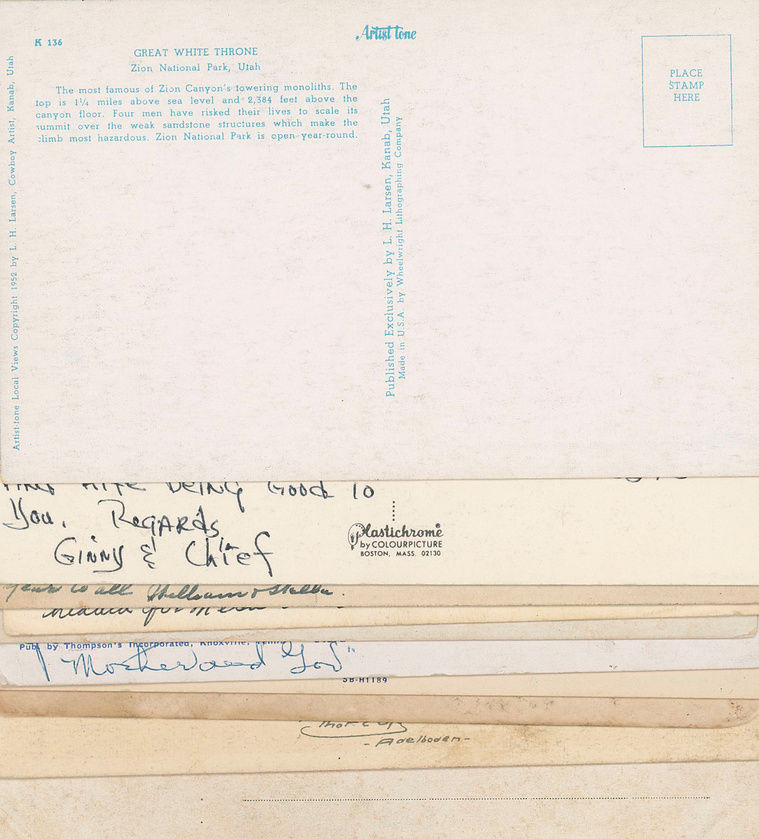 K 136
GREAT WHITE THRONE
Zion National Park, Utah
The most famous of Zion Canyon's towering monoliths. The
top is 1¼ miles above sea level and 2,384 feet above the
canyon floor. Four men have risked their lives to scale its
summit over the weak sandstone structures which make the
climb most hazardous. Zion National Park is open year-round.
Artist-tone Local Views Copyright 1952 by L. H. Larsen, Cowboy Artist, Kanab, Utah
Artist tone
Published Exclusively by L. H. Larsen, Kanab, Utah
Made in U.S.A. by Wheelwright Lithographing Company
PLACE
STAMP
HERE
Being Good To
You. Regards
Ginny & Chief
Plastichrome
by COLOURPICTURE
BOSTON, MASS. 02130
to all William & Stella.
needed for
Pub. by Thompson's Incorporated, Knoxville,
"Mother and God"
SB-H1189
- Adelboden -